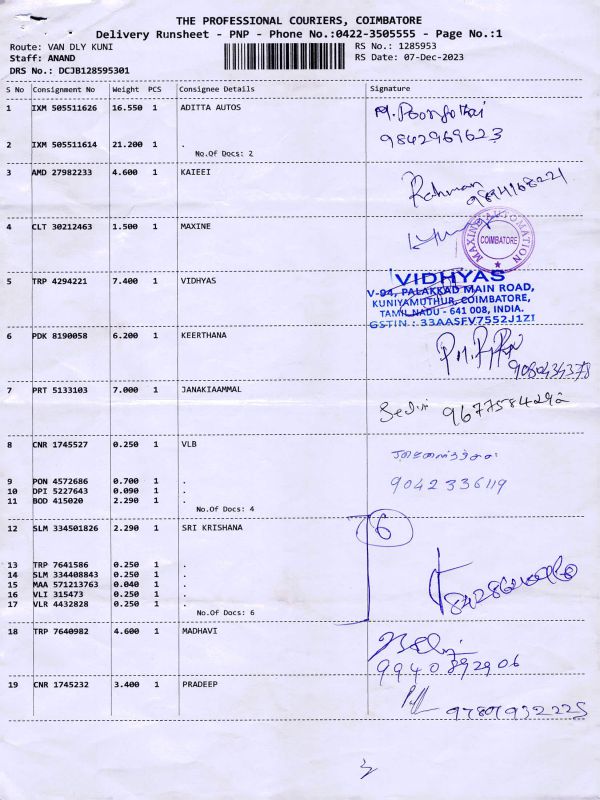 THE PROFESSIONAL COURIERS, COIMBATORE
Delivery Runsheet - PNP - Phone No.:0422-3505555 - Page No.:1
Route: VAN DLY KUNI
RS No.: 1285953
Staff: ANAND
RS Date: 07-Dec-2023
DRS No.: DCJB128595301
S No Consignment No Weight PCS Consignee Details Signature
1 IXM 505511626 16.550 1 ADITTA AUTOS
9842969623
2 IXM 505511614 21.200 1 .
No.Of Docs: 2
3 AMD 27982233 4.600 1 KAIEEI
Rahman
9894168221
4 CLT 30212463 1.500 1 MAXINE
MAXINE AUTOMATION
COIMBATORE
5 TRP 4294221 7.400 1 VIDHYAS
VIDHYAS
V-94, PALAKKAD MAIN ROAD,
KUNIYAMUTHUR, COIMBATORE,
TAMIL NADU - 641 008, INDIA.
GSTIN : 33AASFV7552J1ZI
6 PDK 8190058 6.200 1 KEERTHANA
7 PRT 5133103 7.000 1 JANAKIAAMMAL
9677584292
8 CNR 1745527 0.250 1 VLB
9042336119
9 PON 4572686 0.700 1 .
10 DPI 5227643 0.090 1 .
11 BOD 415020 2.290 1 .
No.Of Docs: 4
12 SLM 334501826 2.290 1 SRI KRISHANA
6
13 TRP 7641586 0.250 1 .
14 SLM 334408843 0.250 1 .
15 MAA 571213763 0.040 1 .
16 VLI 315473 0.250 1 .
17 VLR 4432828 0.250 1 .
No.Of Docs: 6
18 TRP 7640982 4.600 1 MADHAVI
9940892906
19 CNR 1745232 3.400 1 PRADEEP